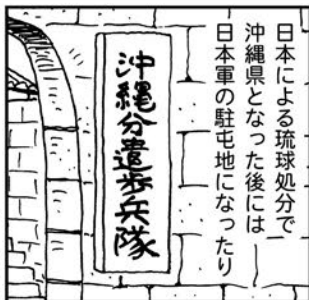 日本による琉球処分で
沖縄県となった後には
日本軍の駐屯地になったり
沖縄分遣歩兵隊